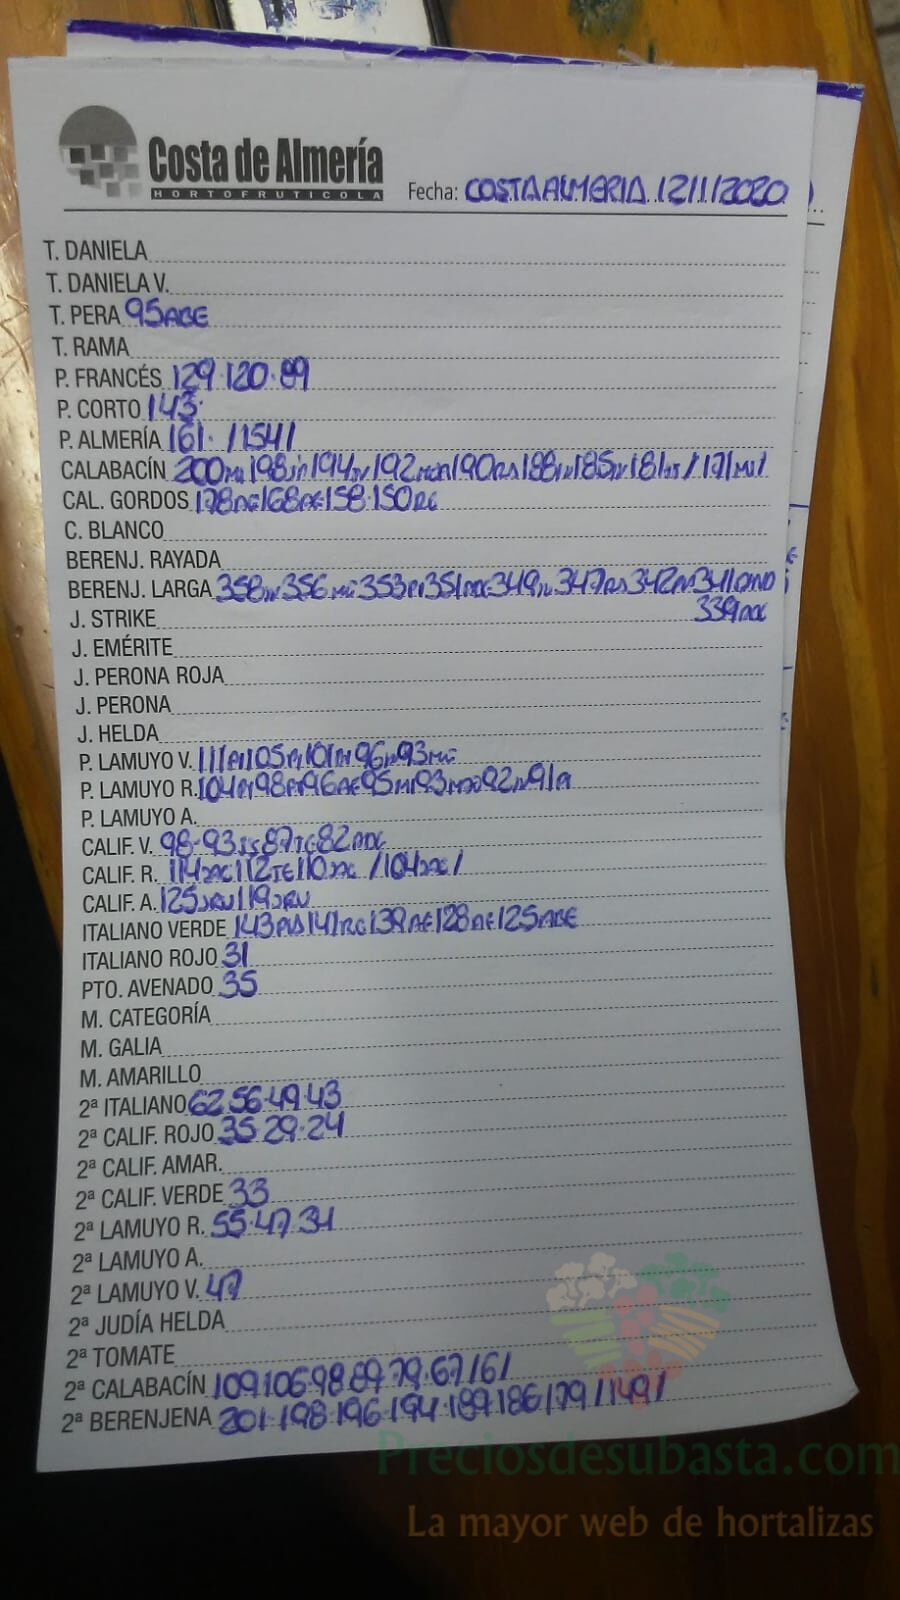 Costa de Almería
HORTOFRUTICOLA
Fecha: COSTA ALMERIA 12/1/2020
T. DANIELA
T. DANIELA V.
T. PERA 95ABE
T. RAMA
P. FRANCÉS 129·120·89
P. CORTO 143·
P. ALMERÍA 161· /154/
CALABACÍN 200 198 194 192 190 188 185 181 /171 /
CAL. GORDOS 178 168 158·150
C. BLANCO
BERENJ. RAYADA
BERENJ. LARGA 358 356 353 351 349 347 342 341
339
J. STRIKE
J. EMÉRITE
J. PERONA ROJA
J. PERONA
J. HELDA
P. LAMUYO V. 111 105 101 96 93
P. LAMUYO R. 104 98 96 95 93 92 91
P. LAMUYO A.
CALIF. V. 98-93 87 82
CALIF. R. 114 112 110 /104 /
CALIF. A. 125 119
ITALIANO VERDE 143 141 139 128 125ABE
ITALIANO ROJO 31
PTO. AVENADO 35
M. CATEGORÍA
M. GALIA
M. AMARILLO
2ª ITALIANO 62·56·49·43
2ª CALIF. ROJO 35·29·24
2ª CALIF. AMAR.
2ª CALIF. VERDE 33
2ª LAMUYO R. 55·47·34
2ª LAMUYO A.
2ª LAMUYO V. 47
2ª JUDÍA HELDA
2ª TOMATE
2ª CALABACÍN 109·106·98·89·79·67/61/
2ª BERENJENA 201·198·196·194·189·186·179/149/
Preciosdesubasta.com
La mayor web de hortalizas